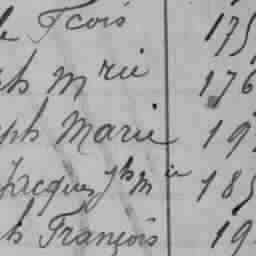 Fçois 175
ph Mrie 176
ph Marie 19
Jacques Jh M ie 185
h François 19